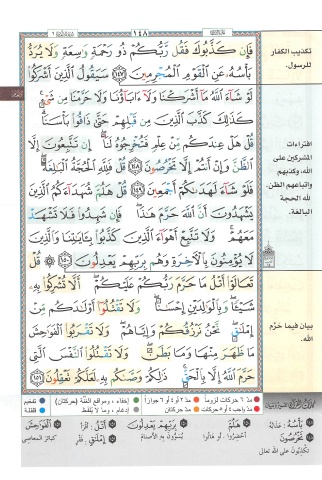 ١٤٨
فَإِن كَذَّبُوكَ فَقُل رَّبُّكُمْ ذُو رَحْمَةٍ وَٰسِعَةٍ وَلَا يُرَدُّ
بَأْسُهُۥ عَنِ ٱلْقَوْمِ ٱلْمُجْرِمِينَ ١٤٧ سَيَقُولُ ٱلَّذِينَ أَشْرَكُوا۟
لَوْ شَآءَ ٱللَّهُ مَآ أَشْرَكْنَا وَلَآ ءَابَآؤُنَا وَلَا حَرَّمْنَا مِن شَىْءٍ
كَذَٰلِكَ كَذَّبَ ٱلَّذِينَ مِن قَبْلِهِمْ حَتَّىٰ ذَاقُوا۟ بَأْسَنَا
قُلْ هَلْ عِندَكُم مِّنْ عِلْمٍ فَتُخْرِجُوهُ لَنَآ إِن تَتَّبِعُونَ إِلَّا
ٱلظَّنَّ وَإِنْ أَنتُمْ إِلَّا تَخْرُصُونَ ١٤٨ قُلْ فَلِلَّهِ ٱلْحُجَّةُ ٱلْبَٰلِغَةُ
فَلَوْ شَآءَ لَهَدَىٰكُمْ أَجْمَعِينَ ١٤٩ قُلْ هَلُمَّ شُهَدَآءَكُمُ ٱلَّذِينَ
يَشْهَدُونَ أَنَّ ٱللَّهَ حَرَّمَ هَٰذَا فَإِن شَهِدُوا۟ فَلَا تَشْهَدْ
مَعَهُمْ وَلَا تَتَّبِعْ أَهْوَآءَ ٱلَّذِينَ كَذَّبُوا۟ بِـَٔايَٰتِنَا وَٱلَّذِينَ
لَا يُؤْمِنُونَ بِٱلْـَٔاخِرَةِ وَهُم بِرَبِّهِمْ يَعْدِلُونَ ١٥٠ ۞ قُلْ
تَعَالَوْا۟ أَتْلُ مَا حَرَّمَ رَبُّكُمْ عَلَيْكُمْ أَلَّا تُشْرِكُوا۟ بِهِۦ
شَيْـًٔا وَبِٱلْوَٰلِدَيْنِ إِحْسَٰنًا وَلَا تَقْتُلُوٓا۟ أَوْلَٰدَكُم مِّنْ
إِمْلَٰقٍ نَّحْنُ نَرْزُقُكُمْ وَإِيَّاهُمْ وَلَا تَقْرَبُوا۟ ٱلْفَوَٰحِشَ
مَا ظَهَرَ مِنْهَا وَمَا بَطَنَ وَلَا تَقْتُلُوا۟ ٱلنَّفْسَ ٱلَّتِى
حَرَّمَ ٱللَّهُ إِلَّا بِٱلْحَقِّ ذَٰلِكُمْ وَصَّىٰكُم بِهِۦ لَعَلَّكُمْ تَعْقِلُونَ ١٥١
تكذيب الكفار
للرسول.
افتراءات
المشركين على
الله، وكذبهم
واتباعهم الظن.
لله الحجة
البالغة.
بيان فيما حرّم
الله.
مدّ ٦ حركات لزوماً
مدّ ٢ أو ٤ أو ٦ جوازاً
إخفاء، ومواقع الغُنّة (حركتان)
تفخيم
مدّ واجب ٤ أو ٥ حركات
مدّ حركتان
إدغام، وما لا يُلفظ
قلقلة
بَأْسُهُ: عذابه
تَخْرُصُونَ
تكذبون على الله تعالى
هَلُمَّ
أحضروا، أو هاتوا
بِرَبِّهِمْ يَعْدِلُونَ
يُسَوُّون به الأصنام
أَتْلُ: أقرأ
إِمْلَاقٍ: فقر
الْفَوَاحِشَ
كبائر المعاصي